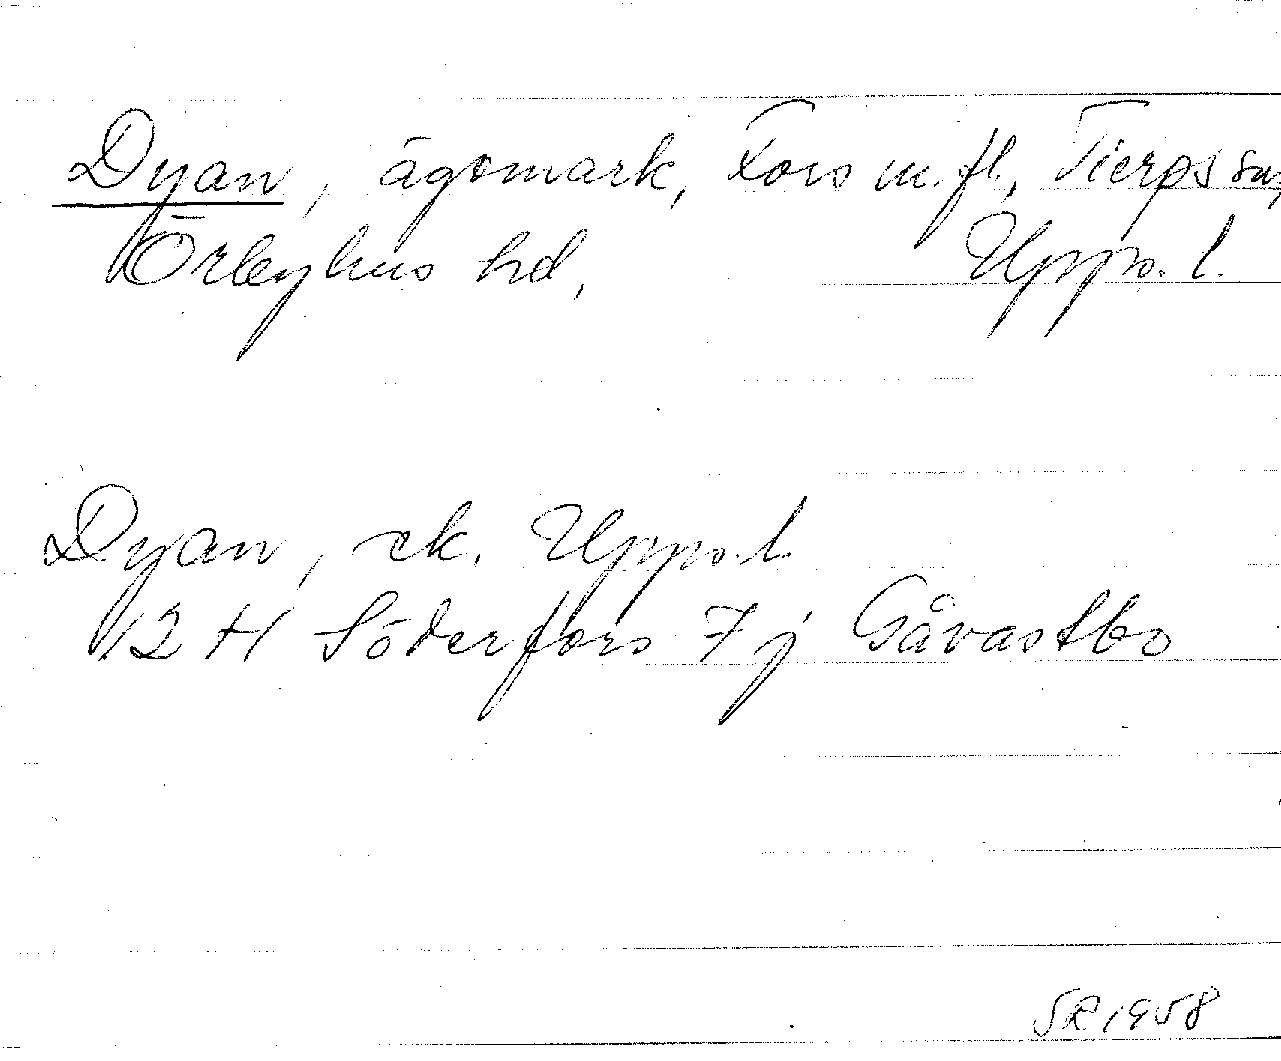 Dyan, ägomark, Fors m.fl., Tierps sn,
Örbyhus hd, Upps. l.
Dyan, ek. Upps. l.
12 H Söderfors 7 j Gåvastbo
SR 1958